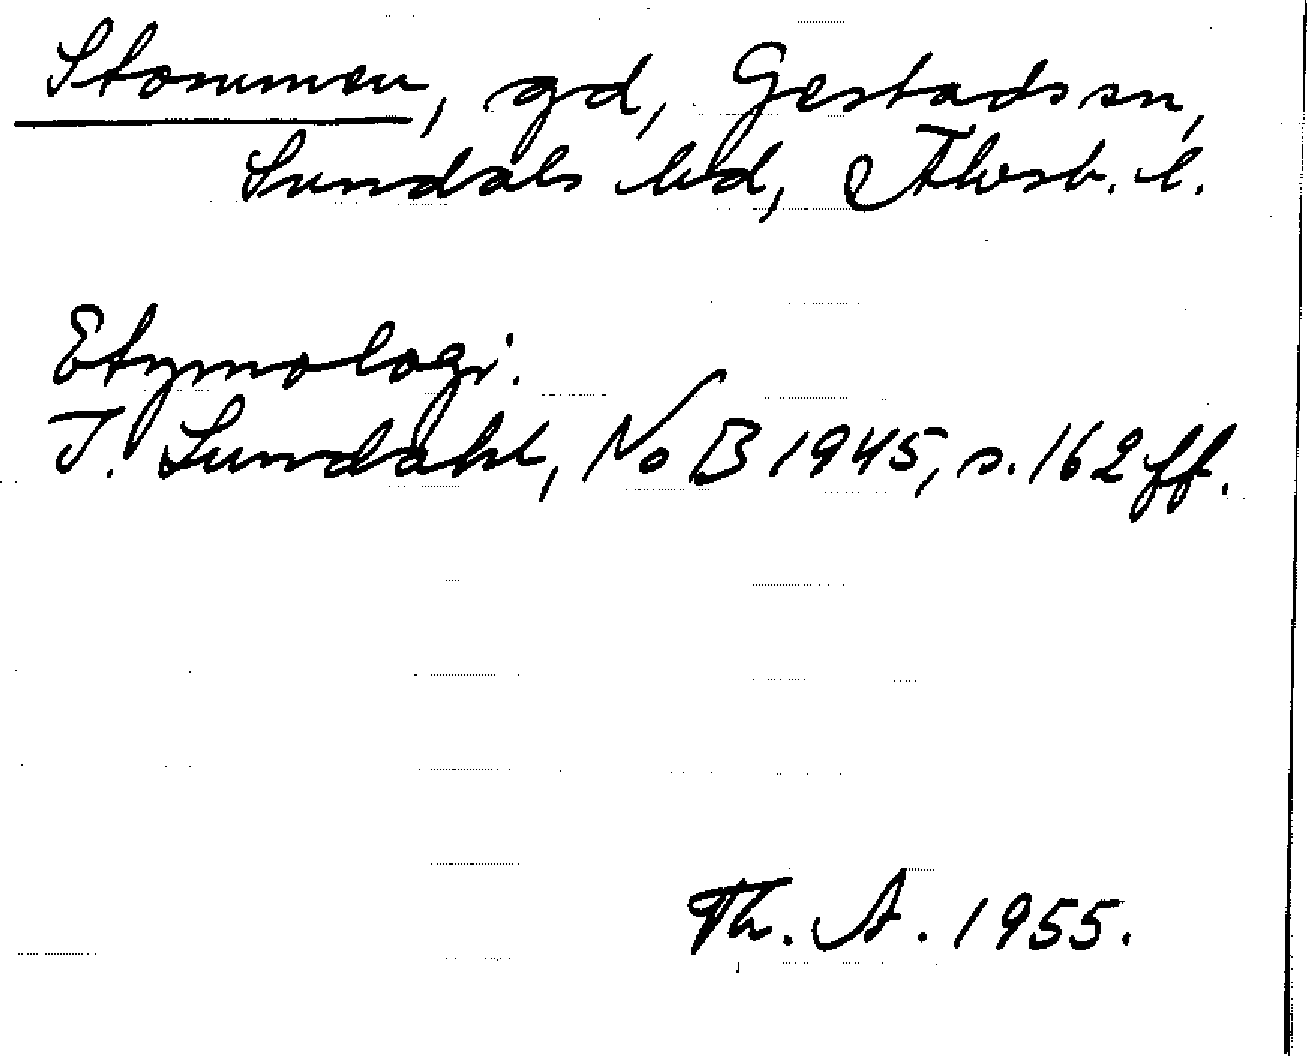 Stommen, gd, Gestads sn,
Sundals hd, Älvsb. l.
Etymologi.
I. Sundahl, NoB 1945, s. 162 ff.
Th. A. 1955.